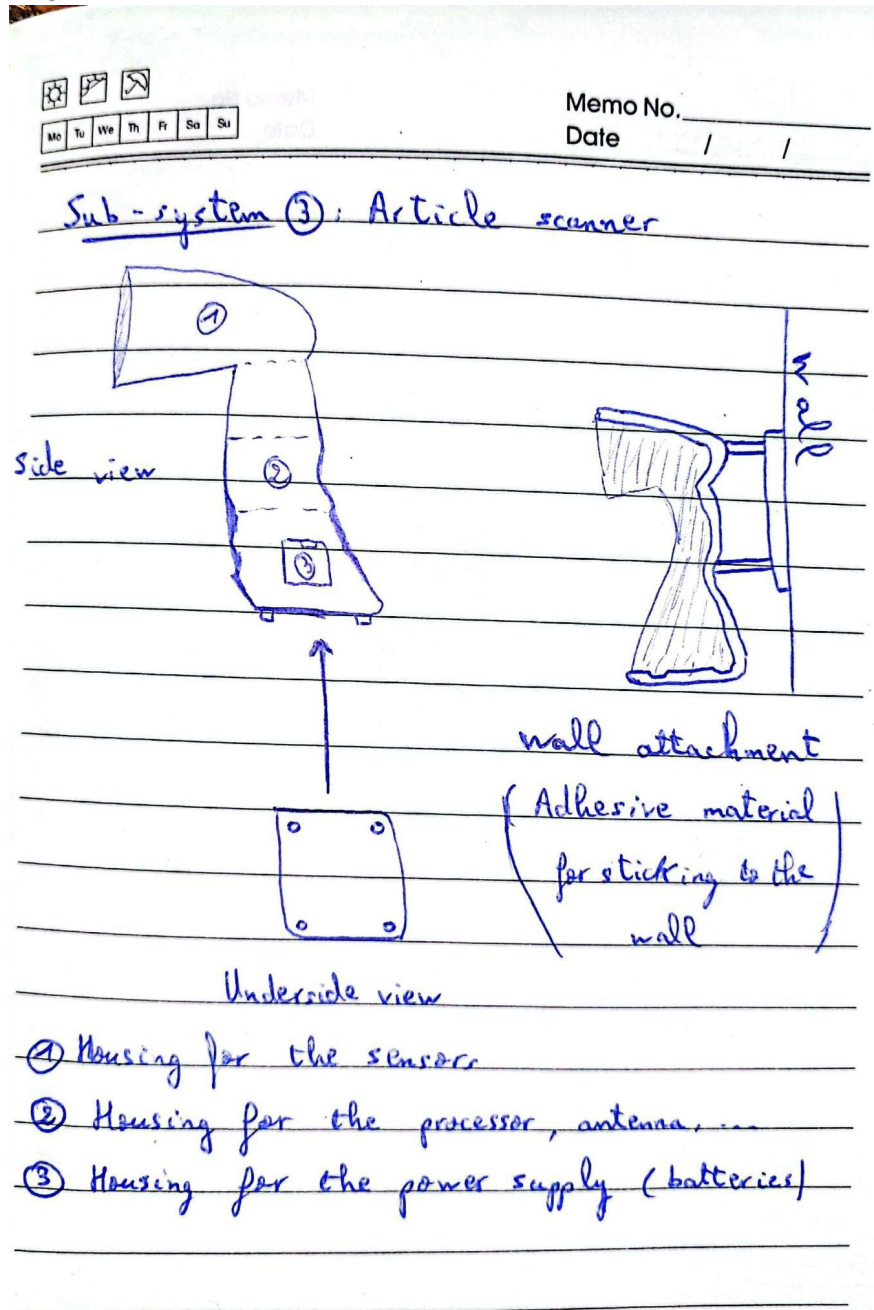 Memo No.
Date / /
Mo Tu We Th Fr Sa Su
Sub-system ③: Article scanner
①
wall
side view
②
③
wall attachment
(Adhesive material
for sticking to the
wall)
Underside view
① Housing for the sensors
② Housing for the processor, antenna, ...
③ Housing for the power supply (batteries)